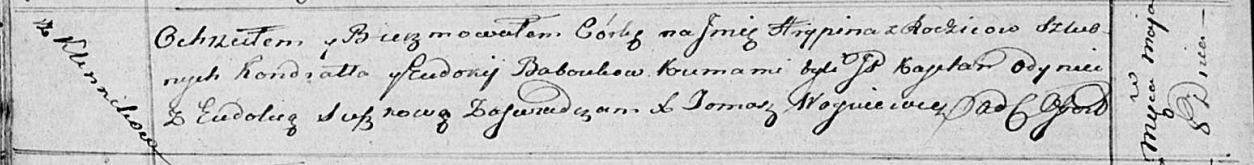 z Klimnikow
Ochrzciłem y Bierzmowałem Córkę na Imię Hrypina z Rodzicow Szlub-
nych Kondratta y Eudokij Babouków. Kumami byli JP Kapitan Odyniec
z Eudokią Zaświadczam X Tomasz Woyniewicz
w Miescu Maja
8 Dnia